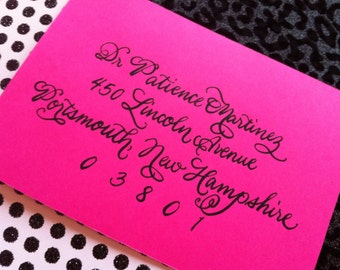 Dr Patience Martinez
450 Lincoln Avenue
Portsmouth, New Hampshire
03801